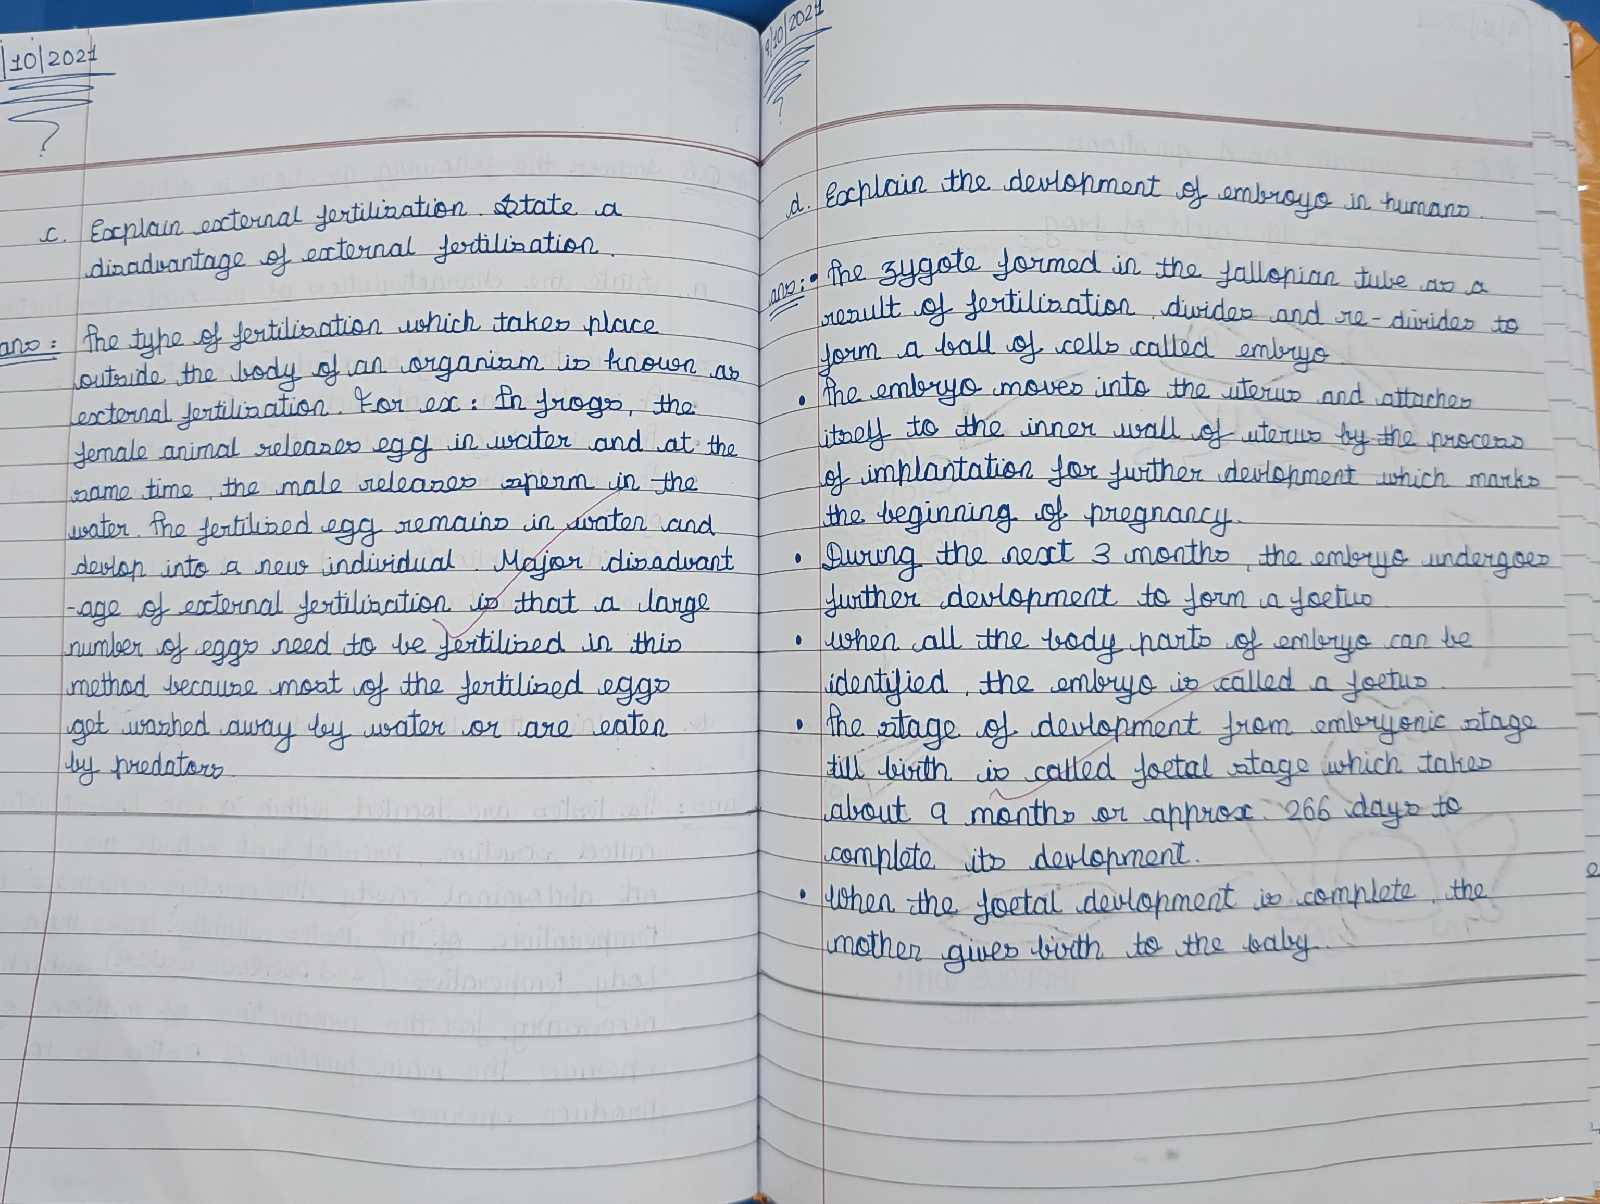 /10/2021
?
c. Explain external fertilization. State a
disadvantage of external fertilization.
ans: The type of fertilization which takes place
outside the body of an organism is known as
external fertilization. For ex: In frogs, the
female animal releases egg in water and at the
same time, the male releases sperm in the
water. The fertilized egg remains in water and
devlop into a new individual. Major disadvant
-age of external fertilization is that a large
number of eggs need to be fertilized in this
method because most of the fertilized eggs
get washed away by water or are eaten
by predators
9/10/2021
?
d. Explain the devlopment of embroyo in humans.
ans: • The zygote formed in the fallopian tube as a
result of fertilization, divides and re-divides to
form a ball of cells called embryo
• The embryo moves into the uterus and attaches
itself to the inner wall of uterus by the process
of implantation for further devlopment which marks
the beginning of pregnancy.
• During the next 3 months, the embryo undergoes
further devlopment to form a foetus
• When all the body parts of embryo can be
identified, the embryo is called a foetus.
• The stage of devlopment from embryonic stage
till birth is called foetal stage which takes
about 9 months or approx. 266 days to
complete its devlopment.
• When the foetal devlopment is complete, the
mother gives birth to the baby.